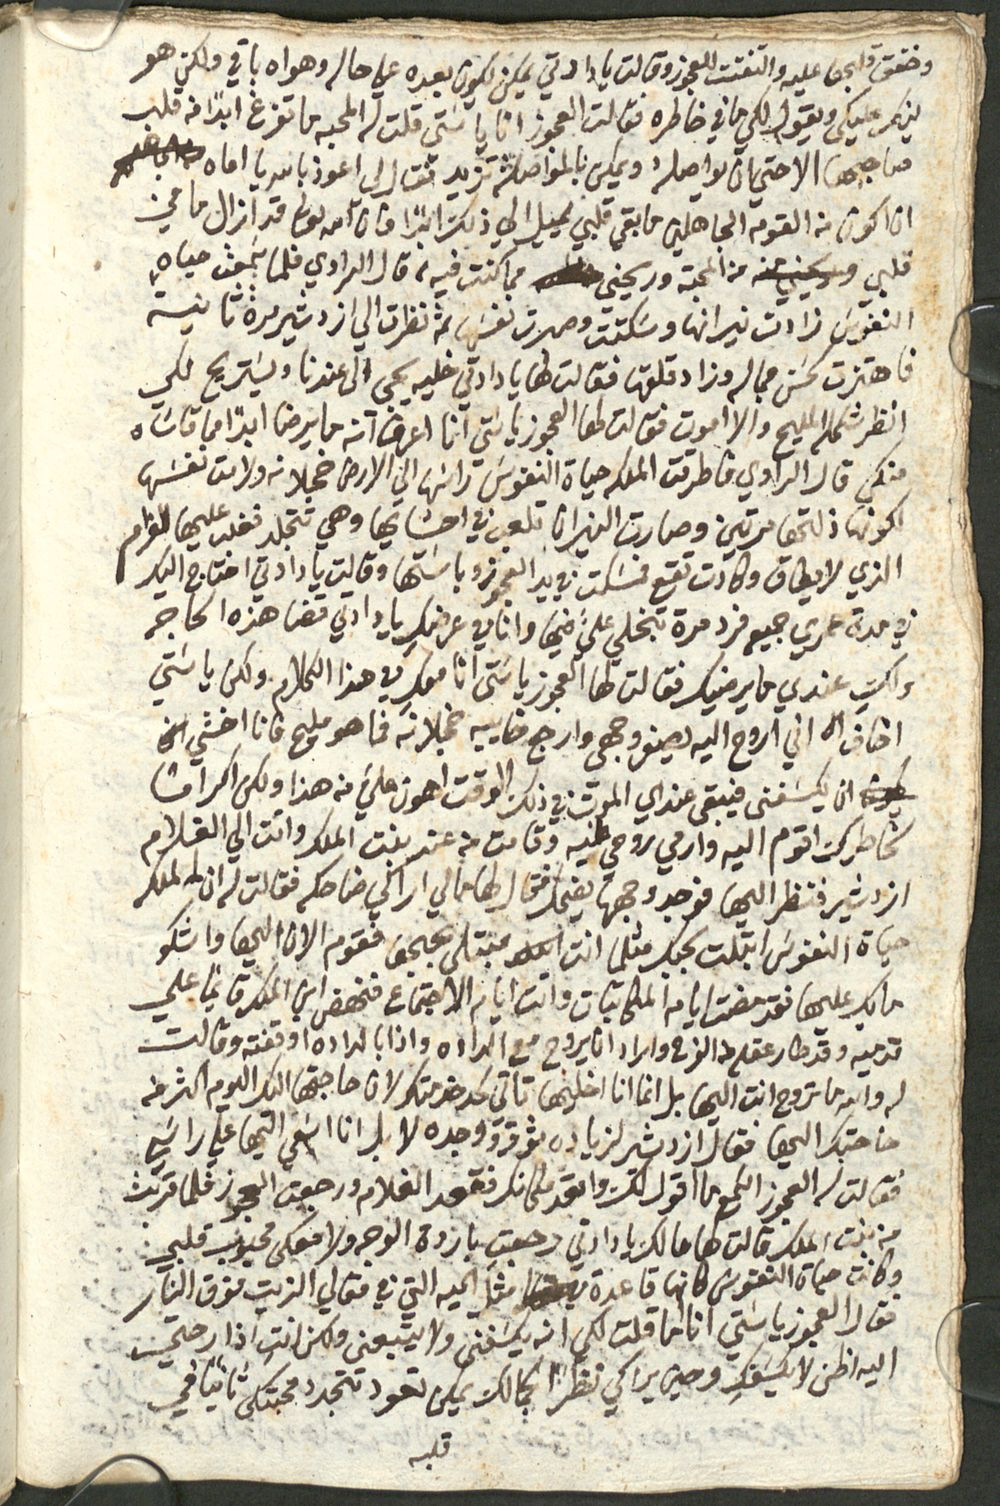 وخفق قلبها عليه والتفتت للعجوز وقالت يا دادتي يمكن يكون بعده على حاله وهواه باقي ولكن هو
ينكر عليكي ويقول لكي ما في خاطره فقالت العجوز انا يا ستي قلت له المحبه ما تفرغ ابدًا من قلب
صاحبها الا حتى ان يواصله ويمكن بالمواصلة تزيد فقال لي اعوذ بالله يا اماه
ان اكون من القوم الجاهلين ما بقي قلبي يميل الى ذلك ابدًا فان الله تعالى قد ازال ما في
قلبي من المحبة وريحني مما كنت فيه، قال الراوي فلما سمعت حياة
النفوس زادت نيرانها وسكتت وصبرت نفسها ثم نظرت الى ازدشير مرة ثانية
فاهتزت لحسن جماله وزاد قلقها فقالت لها يا دادتي خليه يجي الى عندنا ويستريح لكي
انظر شكله المليح والا اموت فقالت لها العجوز يا ستي انا اعرف انه ما يرضا ابدًا مما قاساه
منكي قال الراوي فاطرقت الملكه حياة النفوس راسها الى الارض خجلانه ولامت نفسها
لكونها ذلتها مرتين وصارت النيران تلعب في احشايها وهي تتجلد فغلب عليها الغرام
الذي لا يطاق وكادت تقع فمسكت في يد العجوز وباستها وقالت يا دادتي احتاج اليك
في مدة عمري جميع فرد مرة تتخلي عني فيها وانا في عرضك يا دادتي قضا هذه الحاجه
ولكي عندي ما يرضيك فقالت لها العجوز يا ستي انا معكي في هذا الكلام ولكن يا ستي
اخاف اني اروح اليه بصفو وجهي وارجع خايبه خجلانه فما هو مليح فانا اخشى
ان يكسفني فيبقى عندي الموت في ذلك الوقت اهون علي من هذا ولكن اكرامًا
لخاطرك اقوم اليه وارمي روحي عليه وقامت من عند بنت الملك واتت الى الغلام
ازدشير فنظر اليها فوجد وجهها يضحك فقال لها مالي اراكي ضاحكه فقالت له ان الملكه
حياة النفوس ابتلت بحبك مثلما انت مبتلي بحبها فقوم الان اليها واشكو
ما بك عليها فقد مضت ايام المكاتبات واتت ايام الاجتماع فنهض ابن الملك قايمًا على
قدميه وقد طار عقله من الفرح واراد ان يروح مع الداده واذا بالداده اوقفته وقالت
له والله ما تروح انت اليها بل انما انا اخليها تاتي لحد خدمتك لان حاجتها اليك اليوم اكثر من
حاجتك اليها فقال ازدشير لزيادة شوقه ووجده لا بل انا اسعى اليها على راسي
فقالت له العجوز اسمع ما اقول لك واقعد مكانك فقعد الغلام ورجعت العجوز فلما قربت
من بنت الملك قالت لها ما لك يا دادتي رجعتي باردة الوجه ولا معكي محبوب قلبي
وكانت حياة النفوس كانها قاعدة مثل الحيه التي في مقالي الزيت فوق النار
فقال العجوز يا ستي انا ما قلت لكي انه يكسفني ولا يتبعني ولكن انتي اذا رحتي
اليه اظن لا يكسفك وحين يراكي نظرًا لجمالك يمكن تعود تتجدد محبتكي ثانيًا في
قلبه